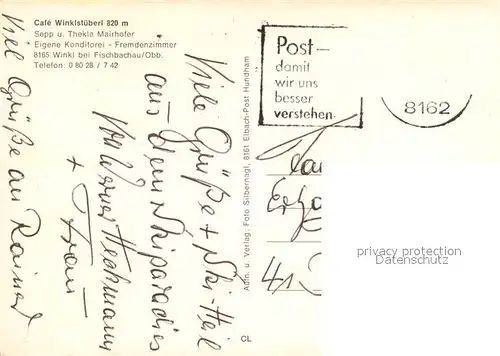 Café Winklstüberl 820 m
Sepp u. Thekla Mairhofer
Eigene Konditorei - Fremdenzimmer
8165 Winkl bei Fischbachau/Obb.
Telefon: 0 80 28 / 7 42
Viele Grüße + Ski-Heil
aus dem Skiparadies
Werner Heckmann
+ Frau
Viel Grüße an Rainer
Aufn. u. Verlag: Foto Silbernagl, 8161 Elbach-Post Hundham
CL
Post-
damit
wir uns
besser
verstehen
8162
privacy protection
Datenschutz